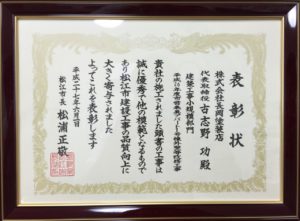 表彰状
株式会社長岡塗装店
代表取締役 古志野 功 殿
建築工事小規模部門
貴社の施工されました頭書の工事は
誠に優秀で他の模範となるもので
あり松江市建設工事の品質向上に
大きく寄与されました
よってこれを表彰します
平成二十七年六月一日
松江市長 松浦正敬